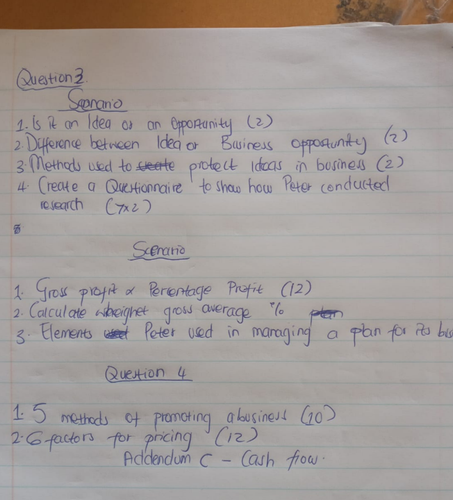 Question 3
Scenario
1. Is it an Idea or an opportunity (2)
2. Difference between Idea or Business opportunity (2)
3. Methods used to create protect Ideas in business (2)
4. Create a Questionnaire to show how Peter conducted
research (7x2)
Scenario
1. Gross profit & Percentage Profit (12)
2. Calculate gross average % plan
3. Elements used Peter used in managing a plan for its bus
Question 4
1. 5 methods of promoting a business (10)
2. 6 factors for pricing (12)
Addendum C - Cash flow.